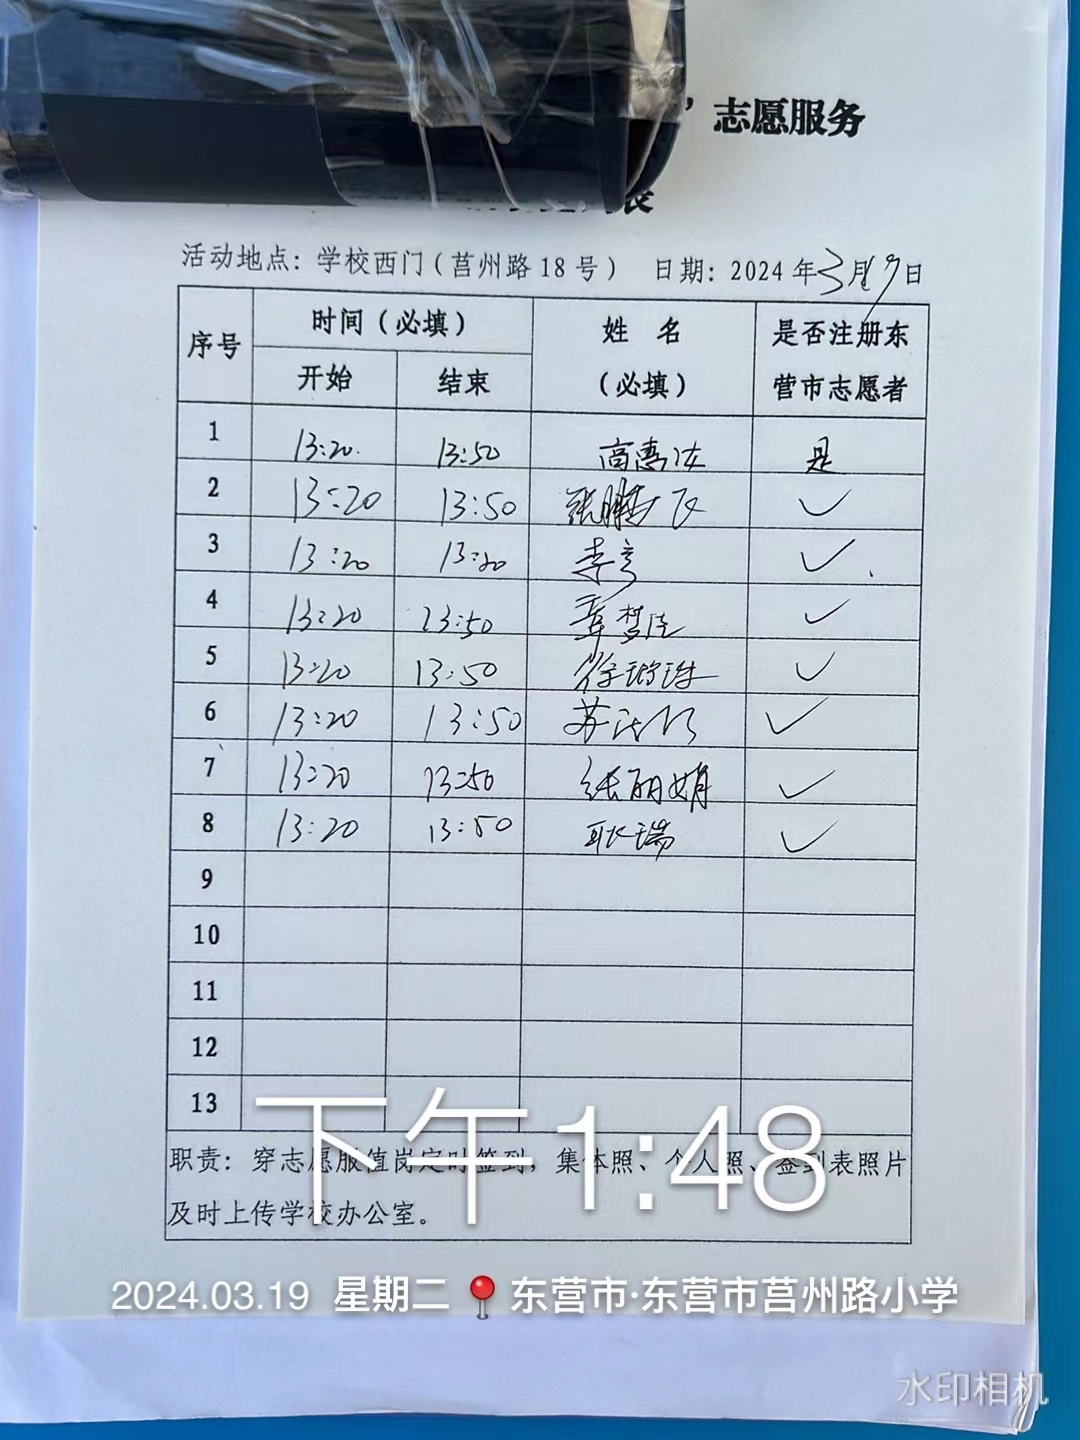 ’志愿服务
表
活动地点：学校西门（莒州路18号） 日期：2024年3月19日
序号 时间（必填） 姓 名 是否注册东
开始 结束 （必填） 营市志愿者
1 13:20. 13:50 高惠 是
2 13:20 13:50 张鹏飞 ✓
3 13:20 李 ✓
4 13:20 13:50 ✓
5 13:20 13:50 徐 ✓
6 13:20 13:50 苏 ✓
7 13:20 13:50 张丽娟 ✓
8 13:20 13:50 耿瑞 ✓
9
10
11
12
13
下午1:48
职责：穿志愿服值岗定时签到，集体照、个人照、签到表照片
及时上传学校办公室。
2024.03.19 星期二 📍东营市·东营市莒州路小学
水印相机